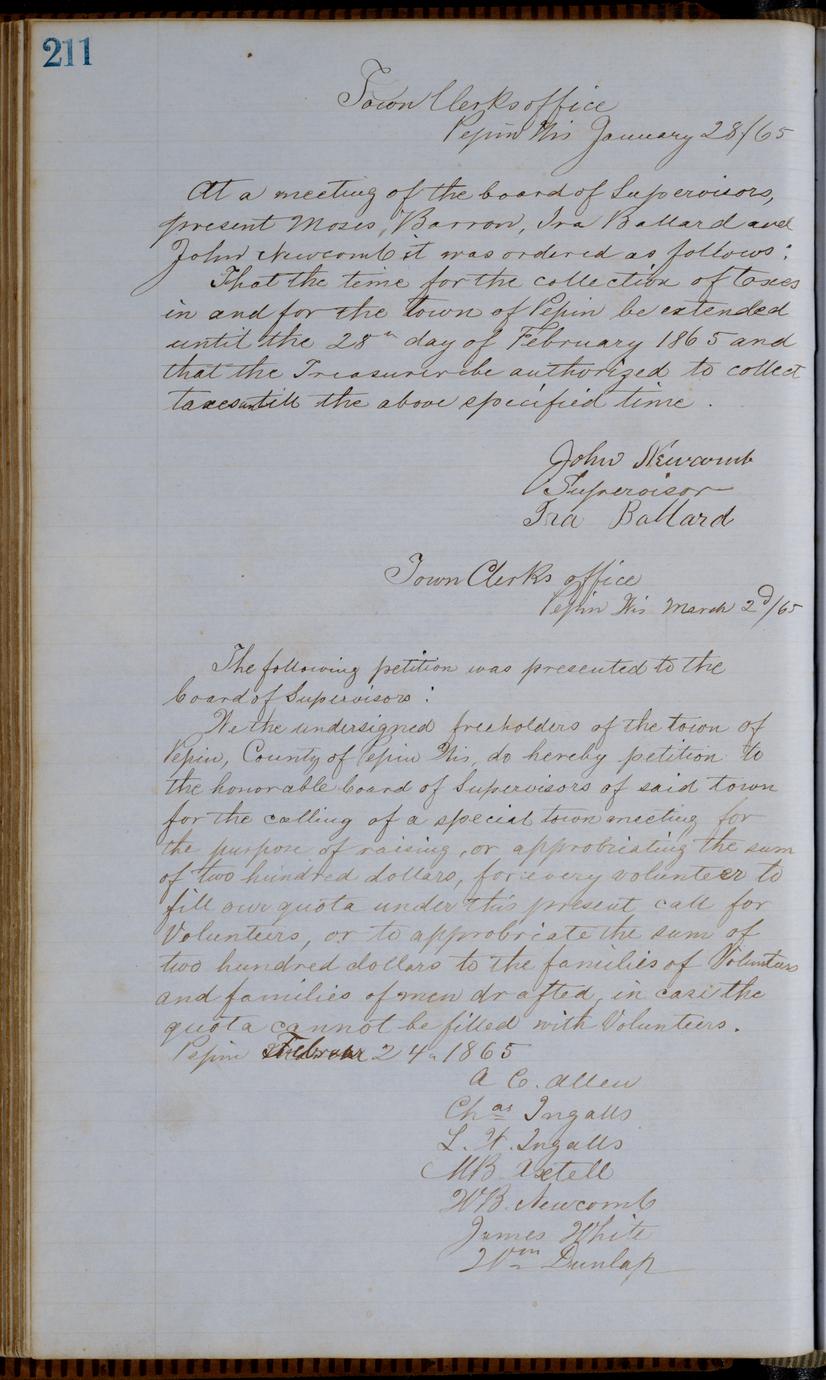 211
Town Clerks office
Pepin Wis January 28/65
At a meeting of the board of Supervisors,
present Moses, Barron, Ira Ballard and
John Newcomb it was ordered as follows:
That the time for the collection of taxes
in and for the town of Pepin be extended
until the 28th day of February 1865 and
that the Treasurer be authorized to collect
taxes untill the above specified time.
John Newcomb
Supervisor
Ira Ballard
Town Clerks office
Pepin Wis March 2d/65
The following petition was presented to the
board of Supervisors:
We the undersigned freeholders of the town of
Pepin, County of Pepin Wis, do hereby petition to
the honorable board of Supervisors of said town
for the calling of a special town meeting for
the purpose of raising, or approbriating the sum
of two hundred dollars, for every volunteer to
fill our quota under this present call for
Volunteers, or to approbriate the sum of
two hundred dollars to the families of Volunteers
and families of men drafted, in case the
quota cannot be filled with Volunteers.
Pepin Februar 24th 1865
A C. Allen
Chas Ingalls
L. W. Ingalls
M B Axtell
W B. Newcomb
James White
Wm Dunlap